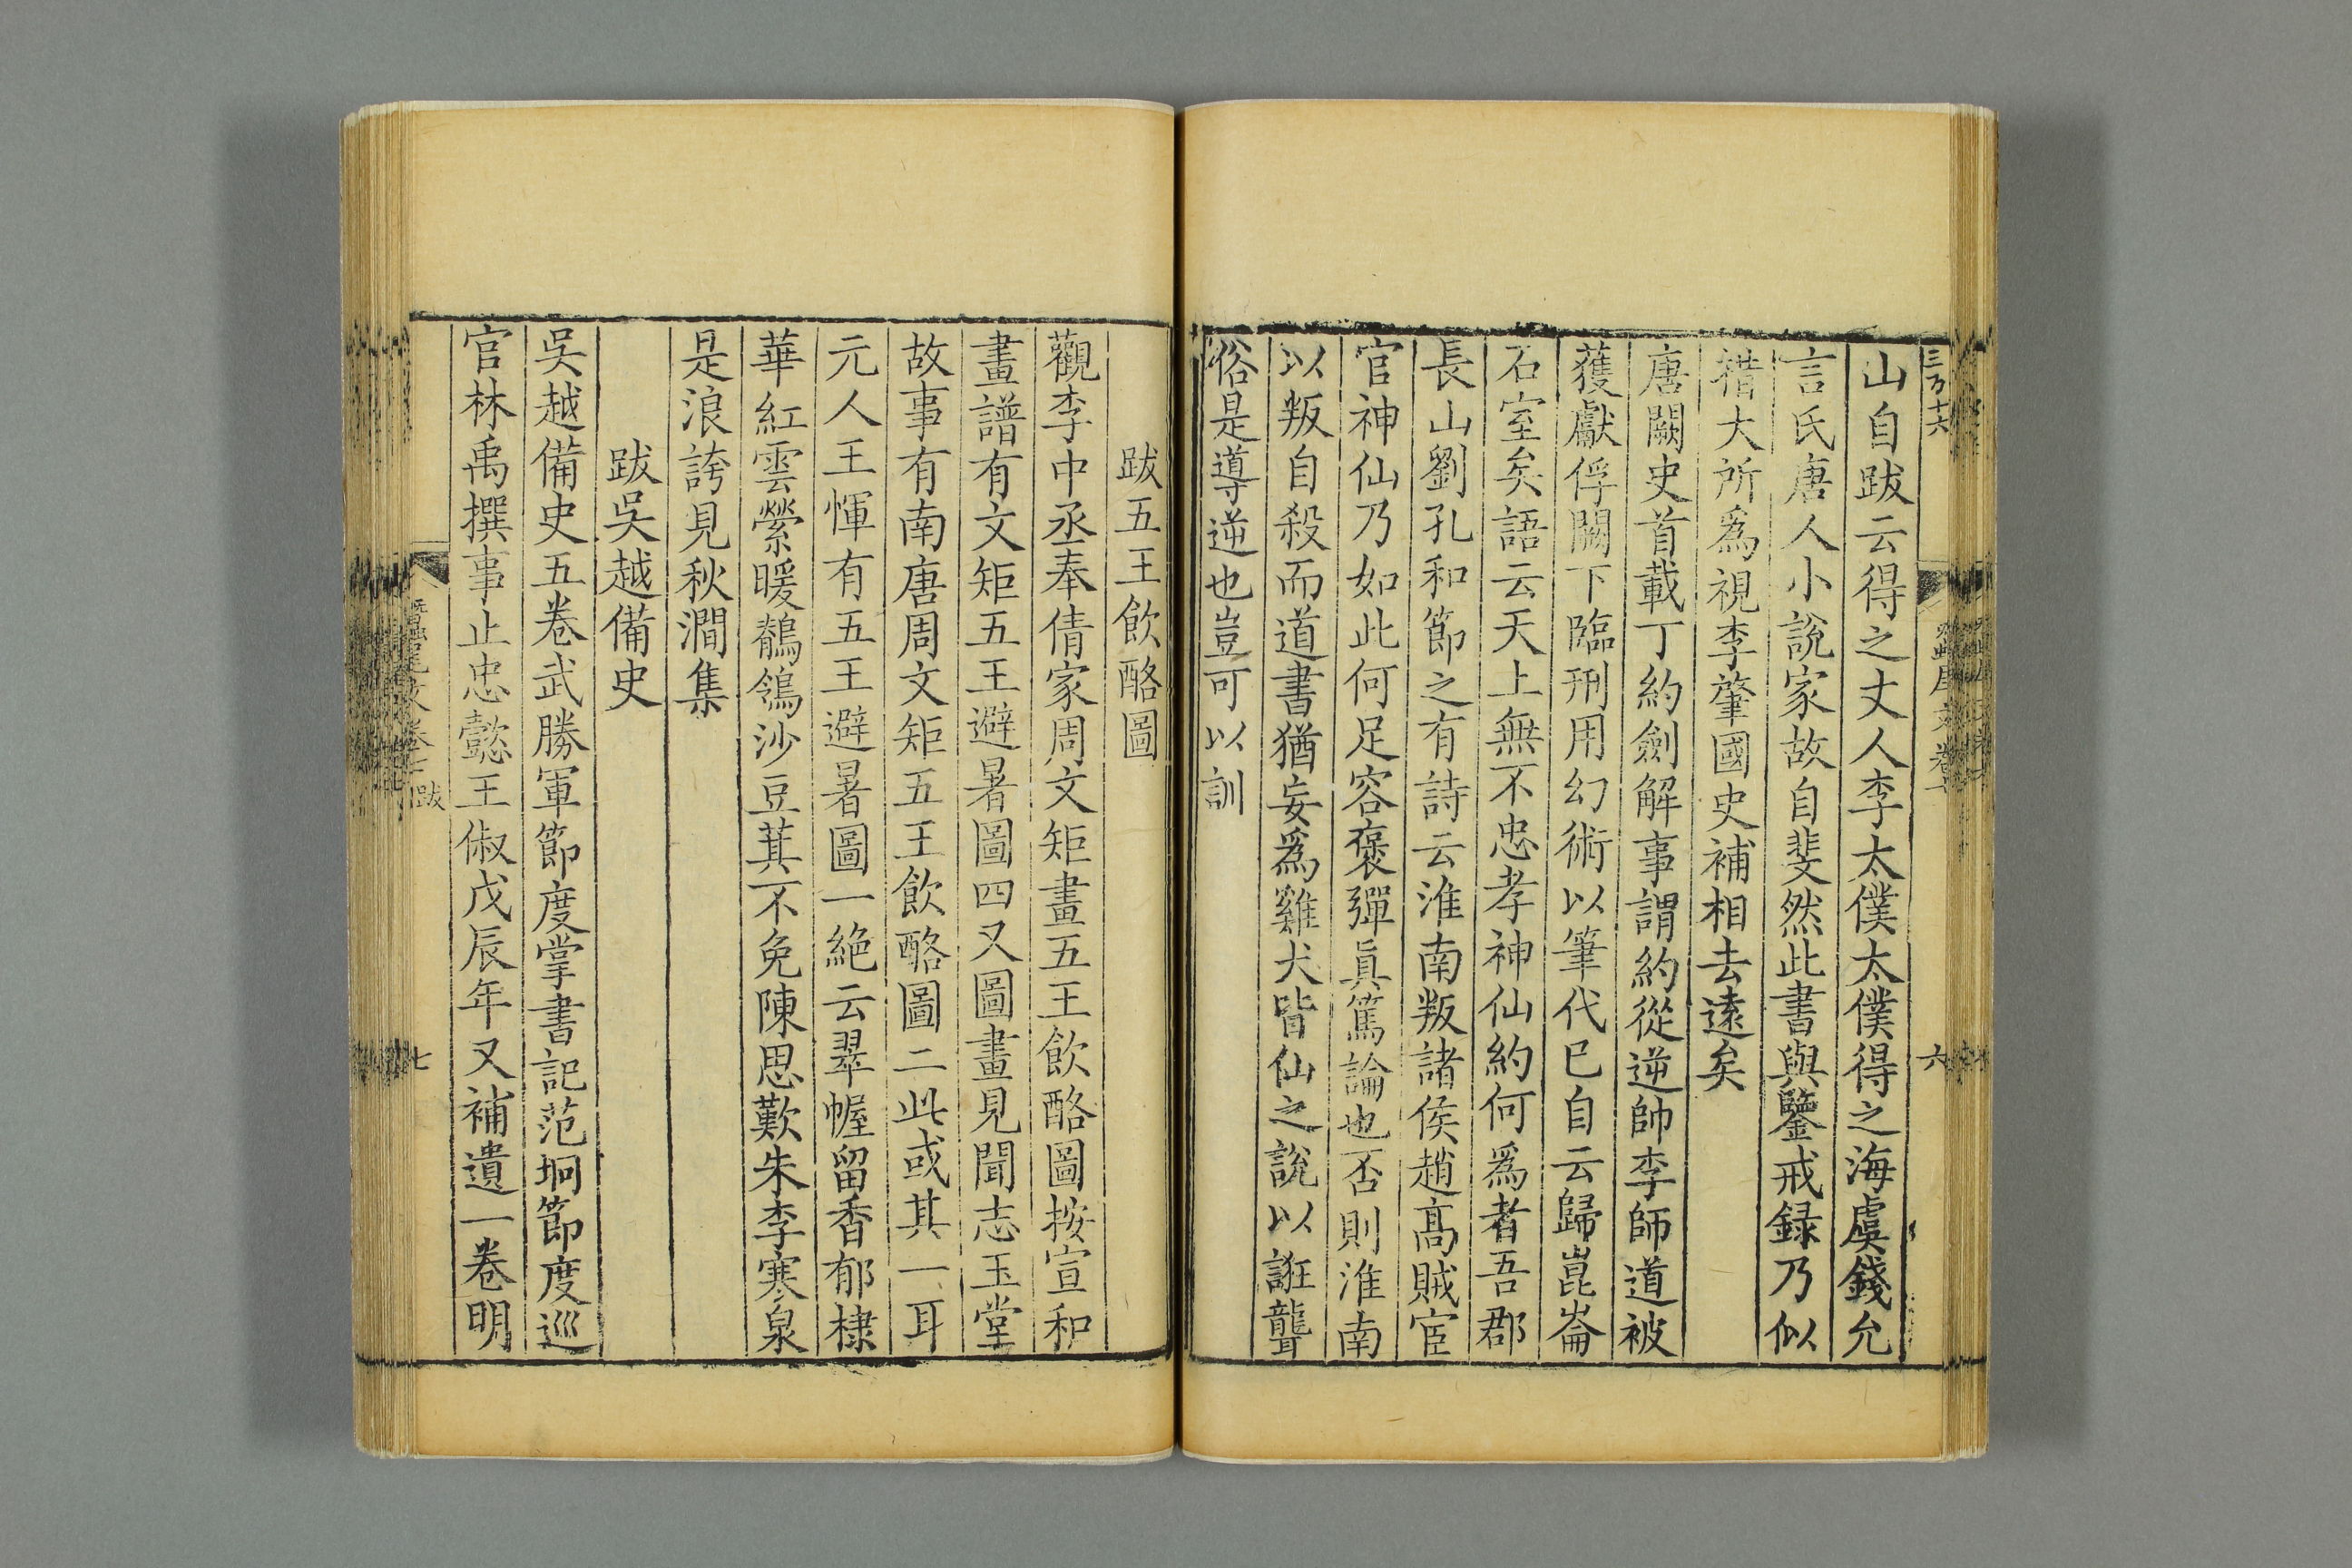 山自跋云得之丈人李太僕太僕得之海虞錢允
言氏唐人小說家故自斐然此書與鑒戒録乃似
措大所爲視李肇國史補相去遠矣
唐闕史首載丁約劍解事謂約從逆帥李師道被
獲獻俘闕下臨刑用幻術以筆代已自云歸崑崙
石室矣語云天上無不忠孝神仙約何爲者吾郡
長山劉孔和節之有詩云淮南叛諸侯趙高賊宦
官神仙乃如此何足容褒彈眞篤論也否則淮南
以叛自殺而道書猶妄爲雞犬皆仙之說以誑聾
俗是導逆也豈可以訓
六
跋五王飲酪圖
觀李中丞奉倩家周文矩畫五王飲酪圖按宣和
畫譜有文矩五王避暑圖四又圖畫見聞志玉堂
故事有南唐周文矩五王飲酪圖二此或其一耳
元人王惲有五王避暑圖一絶云翠幄留香郁棣
華紅雲縈暖鶺鴒沙豆萁不免陳思歎朱李寒泉
是浪誇見秋澗集
跋吳越備史
吳越備史五卷武勝軍節度掌書記范坰節度巡
官林禹撰事止忠懿王俶戊辰年又補遺一卷明
跋
七